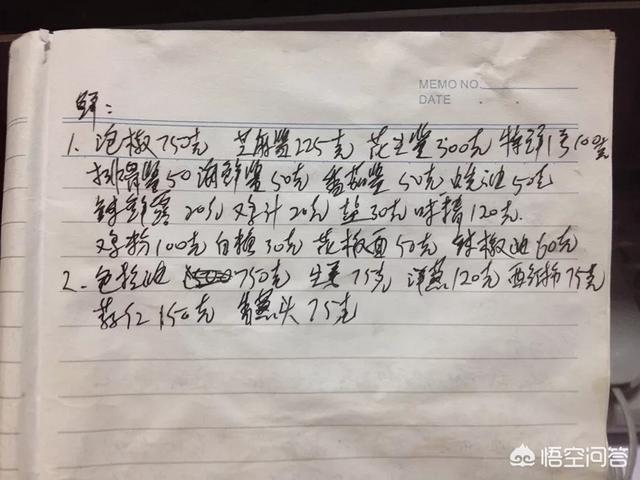 MEMO NO.
DATE
1. 泡椒750克 芝麻酱225克 花生酱300克 特鲜1号100克
排骨酱50 海鲜酱50克 番茄酱50克 蚝油50克
辣鲜露20克 鸡汁20克 盐30克 味精120克
鸡粉100克 白糖30克 花椒面50克 辣椒油60克
2. 色拉油 750克 生姜75克 洋葱120克 西红柿75克
蒜仁150克 青葱头75克
悟空问答